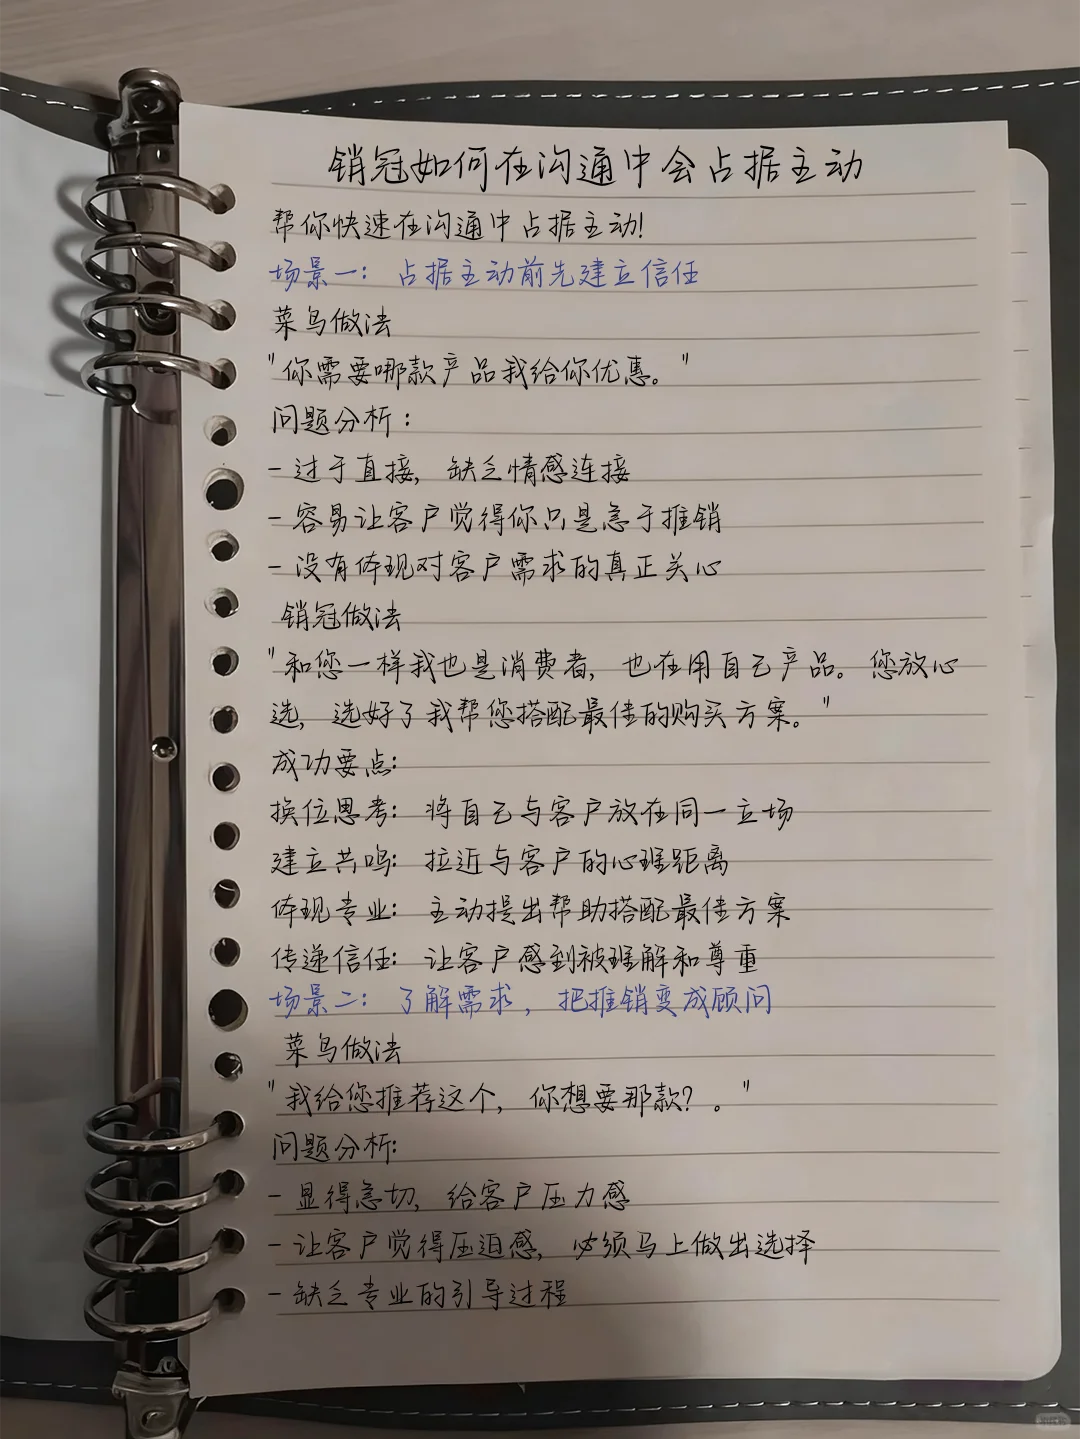 销冠如何在沟通中会占据主动
帮你快速在沟通中占据主动!
场景一：占据主动前先建立信任
菜鸟做法
"你需要哪款产品我给你优惠。"
问题分析：
- 过于直接，缺乏情感连接
- 容易让客户觉得你只是急于推销
- 没有体现对客户需求的真正关心
销冠做法
"和您一样我也是消费者，也在用自己产品。您放心
选，选好了我帮您搭配最佳的购买方案。"
成功要点：
换位思考：将自己与客户放在同一立场
建立共鸣：拉近与客户的心理距离
体现专业：主动提出帮助搭配最佳方案
传递信任：让客户感到被理解和尊重
场景二：了解需求，把推销变成顾问
菜鸟做法
"我给您推荐这个，你想要那款？。"
问题分析：
- 显得急切，给客户压力感
- 让客户觉得压迫感，必须马上做出选择
- 缺乏专业的引导过程